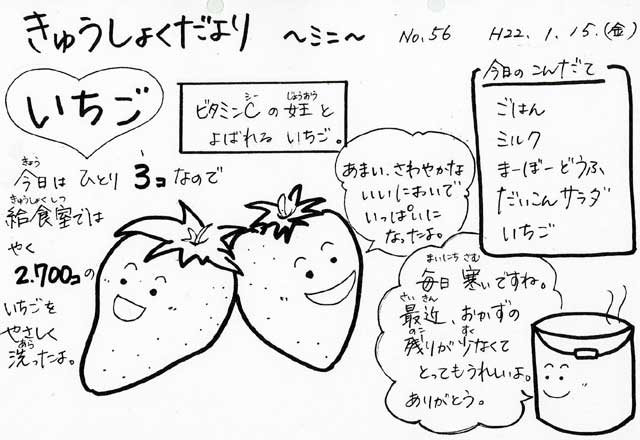 きゅうしょくだより 〜ミニ〜 No.56 H22. 1. 15.(金)
いちご
ビタミンCの女王と
よばれる いちご。
今日のこんだて
ごはん
ミルク
まーぼーどうふ
だいこんサラダ
いちご
今日は ひとり 3コ なので
給食室では
やく
2.700コの
いちごを
やさしく
洗ったよ。
あまい、さわやかな
いいにおいで
いっぱいに
なったよ。
毎日 寒いですね。
最近、おかずの
残りが少なくて
とってもうれしいよ。
ありがとう。